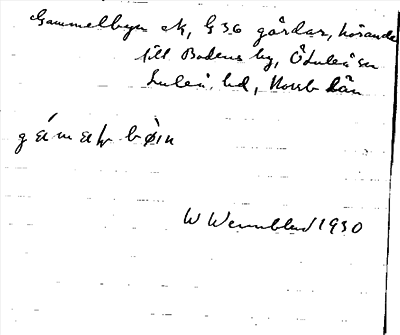 Gammelbyn ek, G 36 gårdar, hörande
till Bodens by, ÖLuleå sn
Luleå hd, Norrb län
W Wennblad 1930